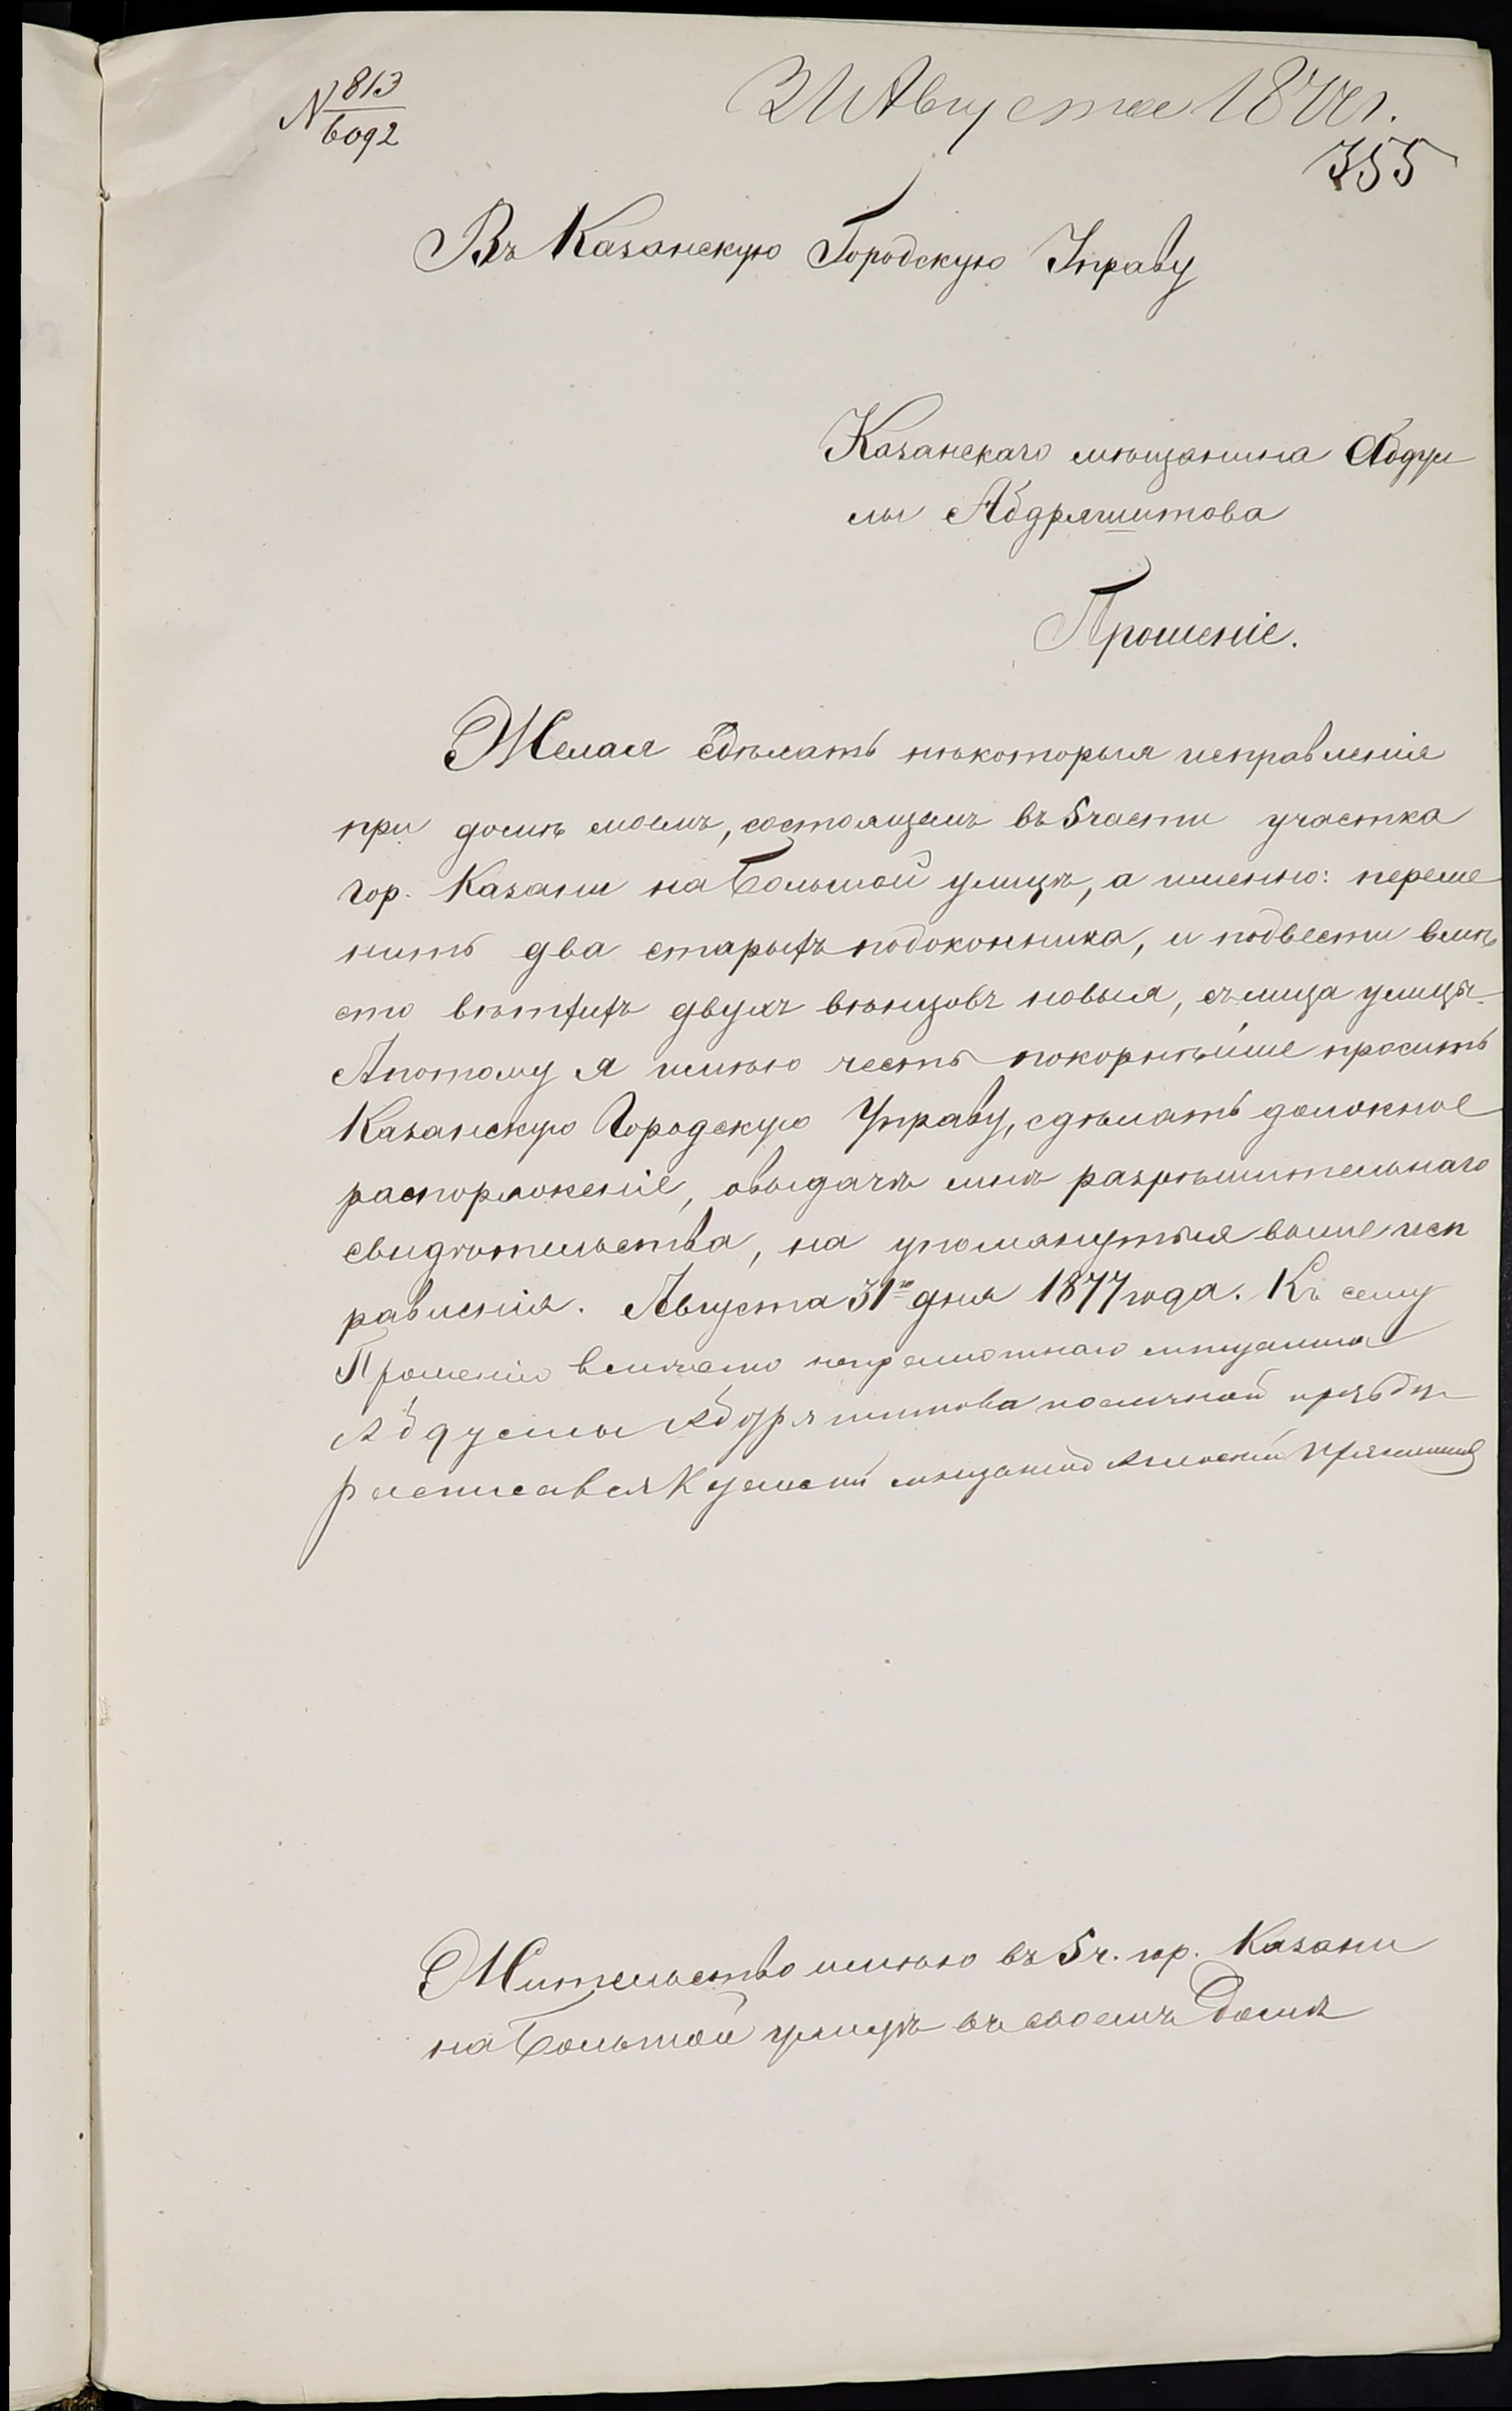 N 813/6092
31 Августа 1877 г.
355
Въ Казанскую Городскую Управу
Казанскаго мѣщанина Абдул
лы Абдряшитова
Прошеніе.
Желая сдѣлать нѣкоторыя исправленія
при домѣ моемъ, состоящемъ въ 5 части участка
гор. Казани на Большой улицѣ, а именно: переме
нить два старыхъ подоконника, и подвести вмѣ
сто вѣтхихъ двухъ вѣнцовъ новыя, съ лица улицы.
А потому я имѣю честь покорнѣйше просить
Казанскую Городскую Управу, сдѣлать должное
распоряженіе, о выдачѣ мнѣ разрѣшительнаго
свидѣтельства, на упомянутыя выше исп
равленія. Августа 31го дня 1877 года. Къ сему
Прошенію вместо неграмотнаго мѣщанина
Абдуллы Абдряшитова по личной прозьбѣ
росписавея мещанинъ
Жительство имѣю въ 5 ч. гор. Казани
на Большой улицѣ въ своемъ домѣ